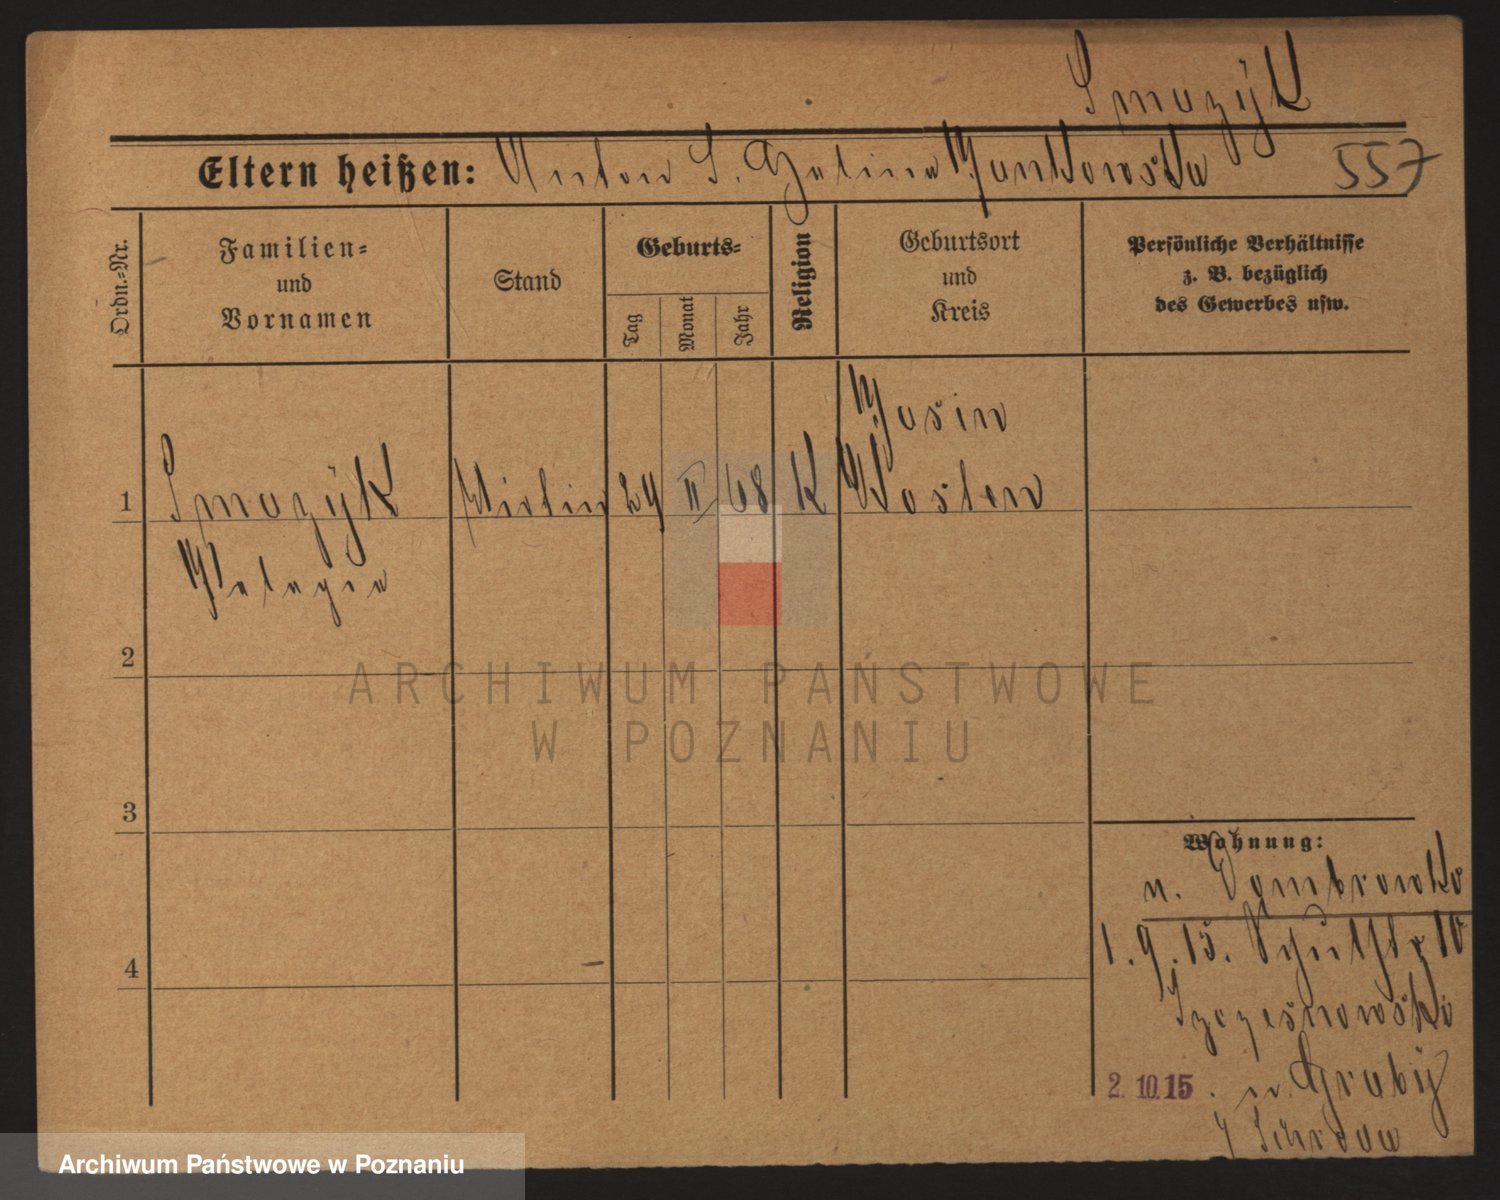 Smuzÿk
Eltern heißen: Anton S. Halina Jankowska 557
Ordn.-Nr.
Familien-
und
Vornamen
Stand
Geburts-
Tag
Monat
Jahr
Religion
Geburtsort
und
Kreis
Persönliche Verhältnisse
z. B. bezüglich
des Gewerbes usw.
1
Smuzÿk
Pelagia
29 II 68 K
Kosten
2
3
4
Wohnung:
n. Dombrowko
1. 9. 15. Schulstr 10
Szczesnowski
2. 10. 15. n. Gruby
Schroda
ARCHIWUM PAŃSTWOWE
W POZNANIU
Archiwum Państwowe w Poznaniu